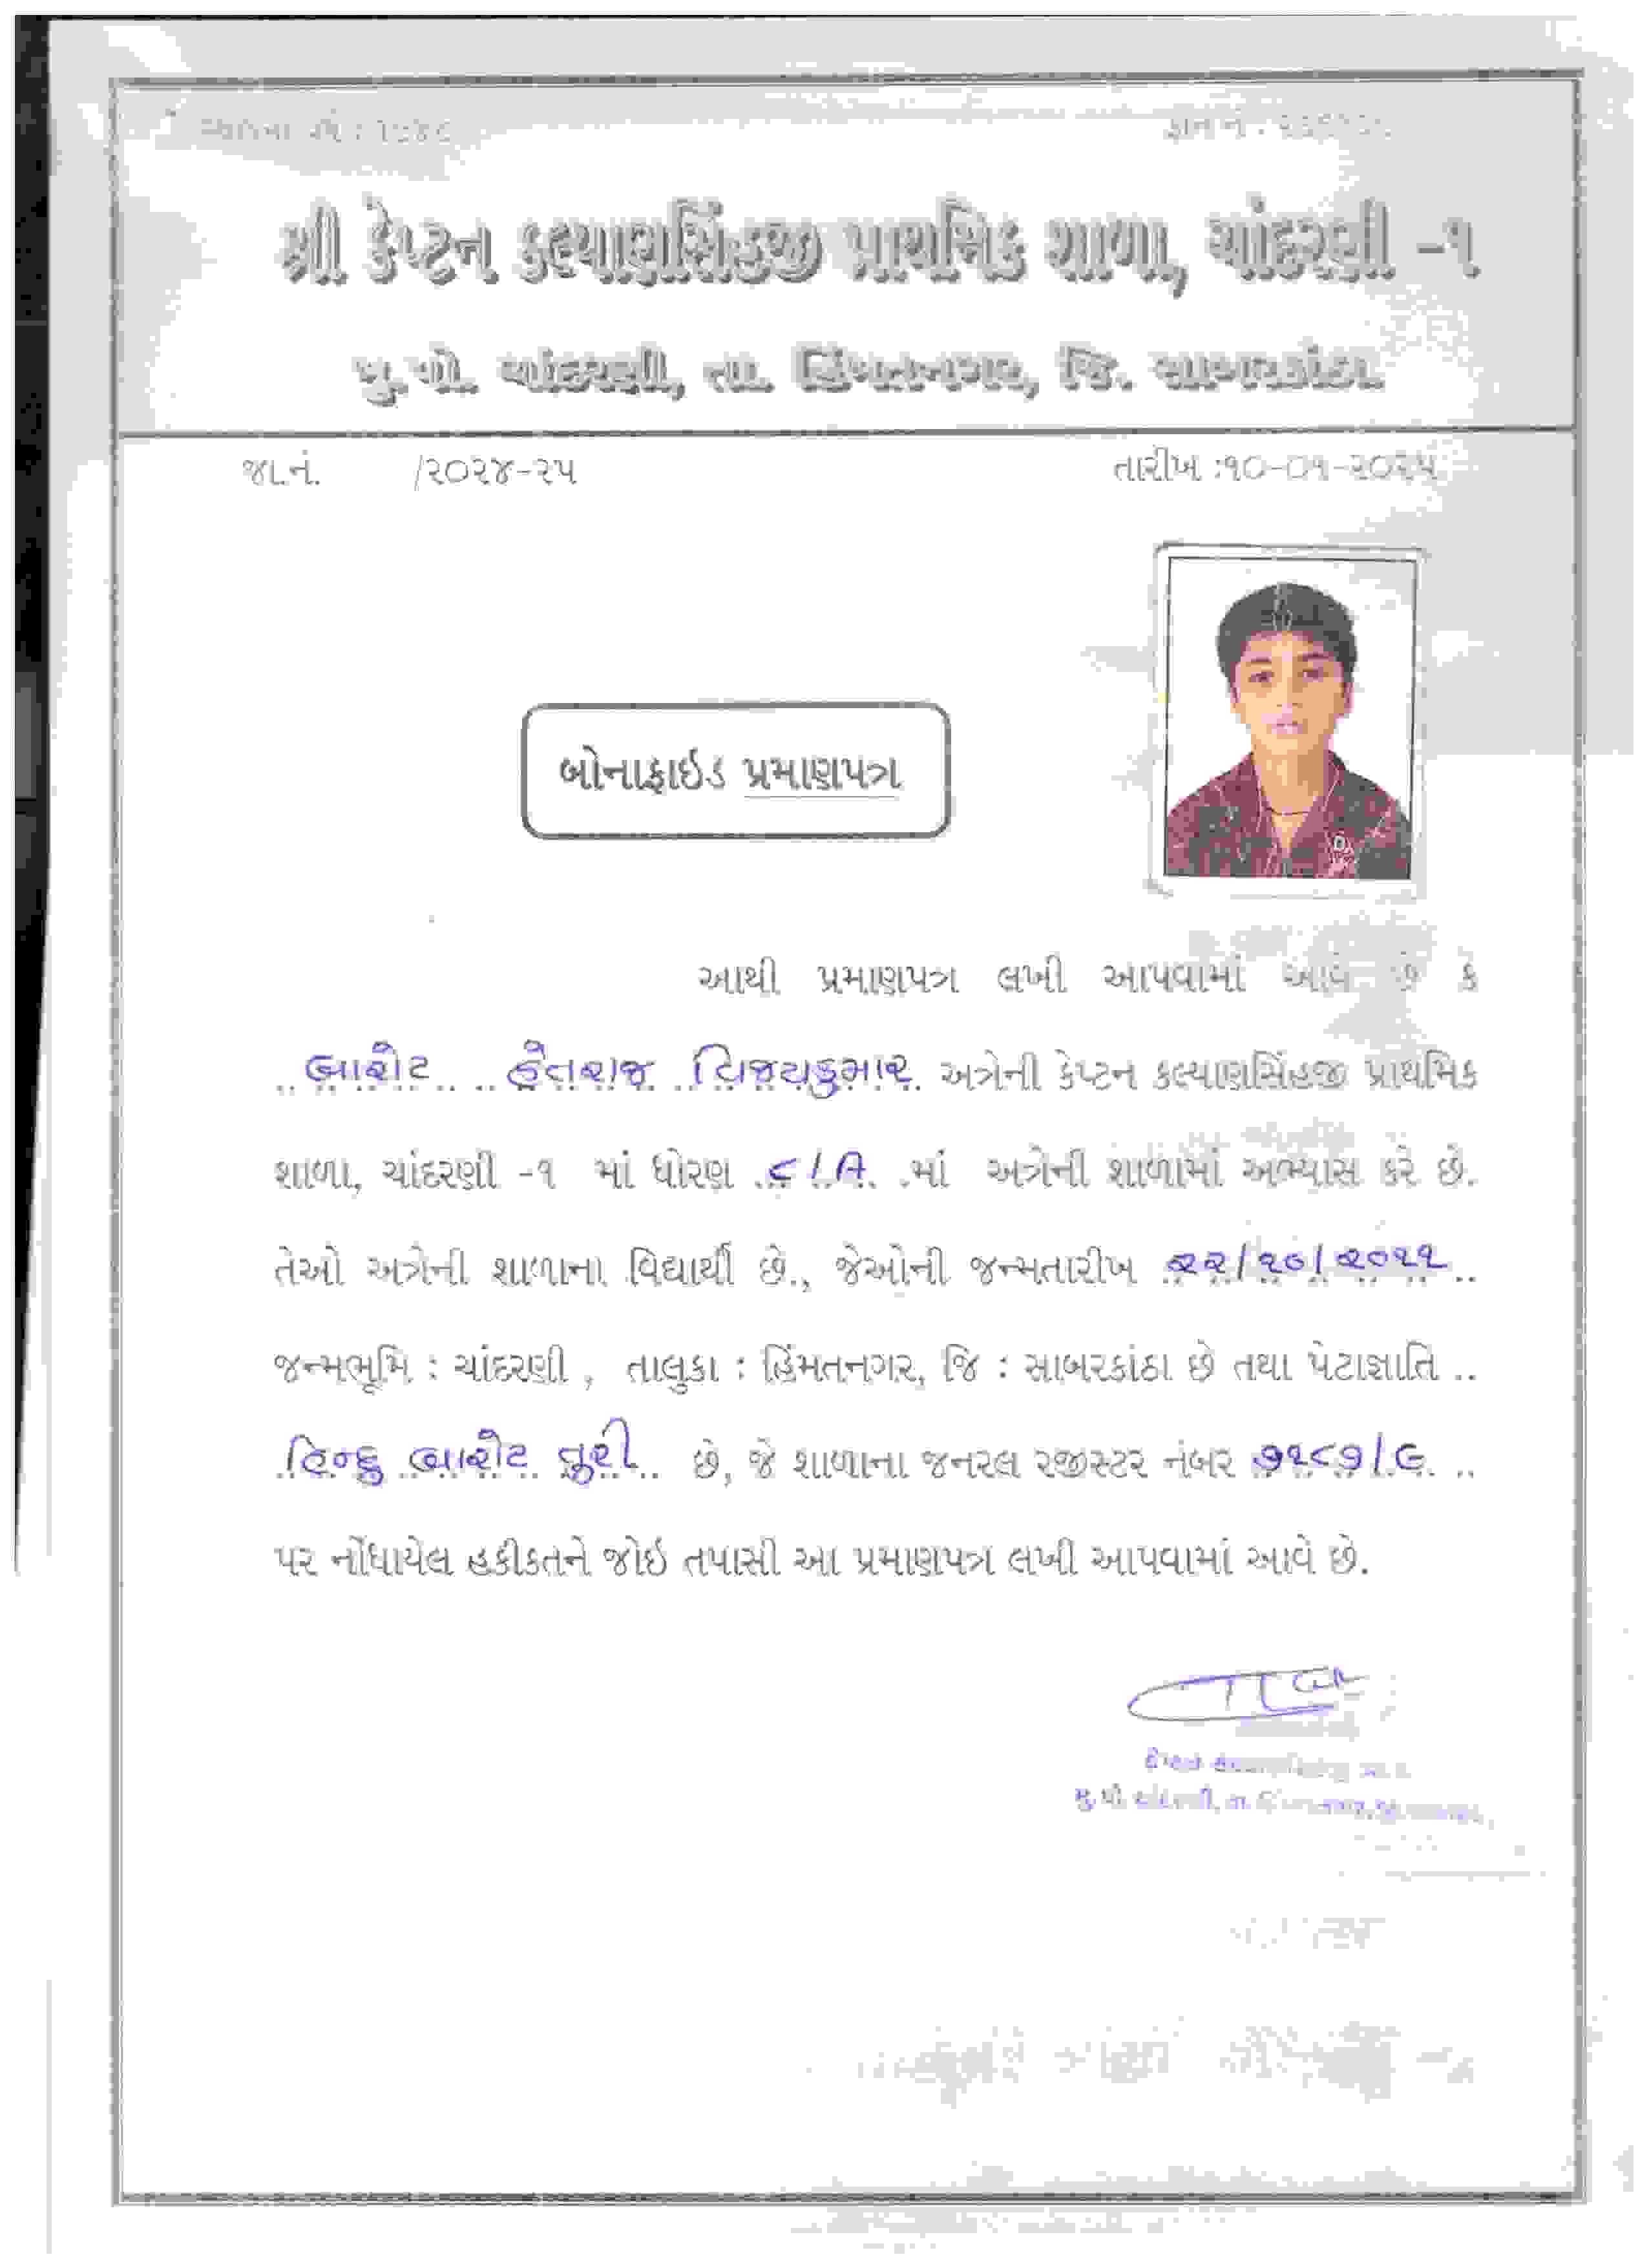 શ્રી કેપ્ટન કલ્યાણસિંહજી પ્રાથમિક શાળા, ચાંદરણી -૧
મુ.પો. ચાંદરણી, તા. હિંમતનગર, જિ. સાબરકાંઠા.
જા.નં. /૨૦૨૪-૨૫ તારીખ :૧૦-૦૧-૨૦૨૫
બોનાફાઇડ પ્રમાણપત્ર
આથી પ્રમાણપત્ર લખી આપવામાં આવે છે કે
બારોટ હેતરાજ વિજયકુમાર અત્રેની કેપ્ટન કલ્યાણસિંહજી પ્રાથમિક
શાળા, ચાંદરણી -૧ માં ધોરણ ૮/A માં અત્રેની શાળામાં અભ્યાસ કરે છે.
તેઓ અત્રેની શાળાના વિદ્યાર્થી છે., જેઓની જન્મતારીખ ૨૨/૧૦/૨૦૧૧
જન્મભૂમિ : ચાંદરણી , તાલુકા : હિંમતનગર, જિ : સાબરકાંઠા છે તથા પેટાજ્ઞાતિ ..
હિન્દુ બારોટ તુરી છે, જે શાળાના જનરલ રજીસ્ટર નંબર ૭૧૮૭/૯
પર નોંધાયેલ હકીકતને જોઇ તપાસી આ પ્રમાણપત્ર લખી આપવામાં આવે છે.
મુ.પો. ચાંદરણી, તા.